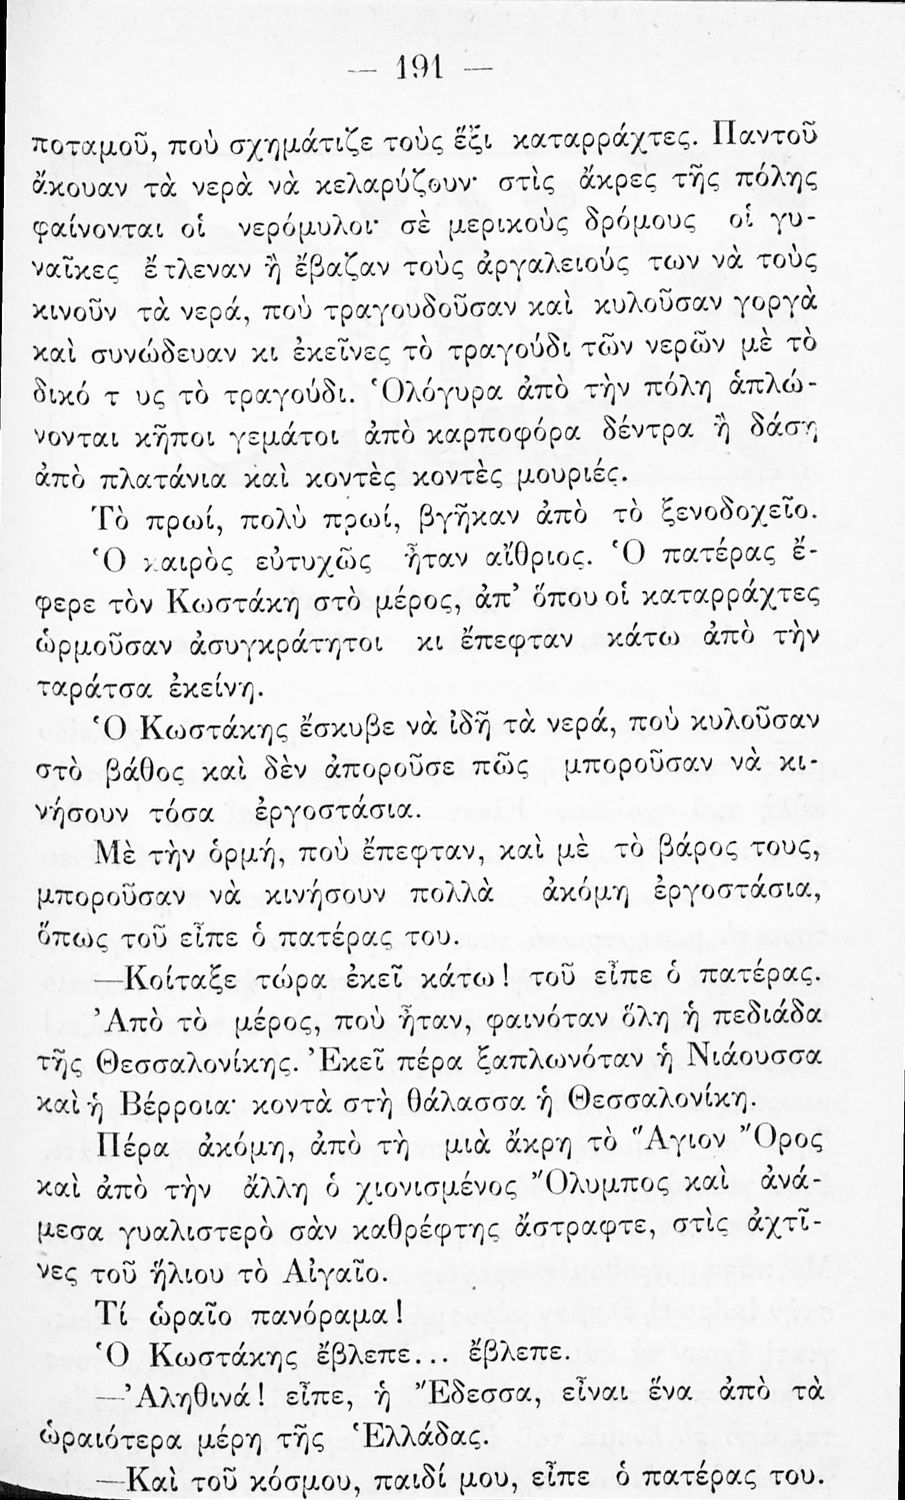 — 191 —
ποταμοῦ, ποὺ σχημάτιζε τοὺς ἕξι καταρράχτες. Παντοῦ
ἄκουαν τὰ νερὰ νὰ κελαρύζουν· στὶς ἄκρες τῆς πόλης
φαίνονται οἱ νερόμυλοι· σὲ μερικοὺς δρόμους οἱ γυ-
ναῖκες ἔ τλεναν ἢ ἔβαζαν τοὺς ἀργαλειούς των νὰ τοὺς
κινοῦν τὰ νερά, ποὺ τραγουδοῦσαν καὶ κυλοῦσαν γοργὰ
καὶ συνώδευαν κι ἐκεῖνες τὸ τραγούδι τῶν νερῶν μὲ τὸ
δικό τ υς τὸ τραγούδι. Ὁλόγυρα ἀπὸ τὴν πόλη ἁπλώ-
νονται κῆποι γεμάτοι ἀπὸ καρποφόρα δέντρα ἢ δάση
ἀπὸ πλατάνια καὶ κοντὲς κοντὲς μουριές.
Τὸ πρωί, πολὺ πρωί, βγῆκαν ἀπὸ τὸ ξενοδοχεῖο.
Ὁ καιρὸς εὐτυχῶς ἦταν αἴθριος. Ὁ πατέρας ἔ-
φερε τὸν Κωστάκη στὸ μέρος, ἀπ’ ὅπου οἱ καταρράχτες
ὡρμοῦσαν ἀσυγκράτητοι κι ἔπεφταν κάτω ἀπὸ τὴν
ταράτσα ἐκείνη.
Ὁ Κωστάκης ἔσκυβε νὰ ἰδῆ τὰ νερά, ποὺ κυλοῦσαν
στὸ βάθος καὶ δὲν ἀποροῦσε πῶς μποροῦσαν νὰ κι-
νήσουν τόσα ἐργοστάσια.
Μὲ τὴν ὁρμή, ποὺ ἔπεφταν, καὶ μὲ τὸ βάρος τους,
μποροῦσαν νὰ κινήσουν πολλὰ ἀκόμη ἐργοστάσια,
ὅπως τοῦ εἶπε ὁ πατέρας του.
—Κοίταξε τώρα ἐκεῖ κάτω! τοῦ εἶπε ὁ πατέρας.
Ἀπὸ τὸ μέρος, ποὺ ἦταν, φαινόταν ὅλη ἡ πεδιάδα
τῆς Θεσσαλονίκης. Ἐκεῖ πέρα ξαπλωνόταν ἡ Νιάουσσα
καὶ ἡ Βέρροια· κοντὰ στὴ θάλασσα ἡ Θεσσαλονίκη.
Πέρα ἀκόμη, ἀπὸ τὴ μιὰ ἄκρη τὸ Ἅγιον Ὄρος
καὶ ἀπὸ τὴν ἄλλη ὁ χιονισμένος Ὄλυμπος καὶ ἀνά-
μεσα γυαλιστερὸ σὰν καθρέφτης ἄστραφτε, στὶς ἀχτῖ-
νες τοῦ ἥλιου τὸ Αἰγαῖο.
Τί ὡραῖο πανόραμα!
Ὁ Κωστάκης ἔβλεπε... ἔβλεπε.
—Ἀληθινά! εἶπε, ἡ Ἔδεσσα, εἶναι ἕνα ἀπὸ τὰ
ὡραιότερα μέρη τῆς Ἑλλάδας.
—Καὶ τοῦ κόσμου, παιδί μου, εἶπε ὁ πατέρας του.